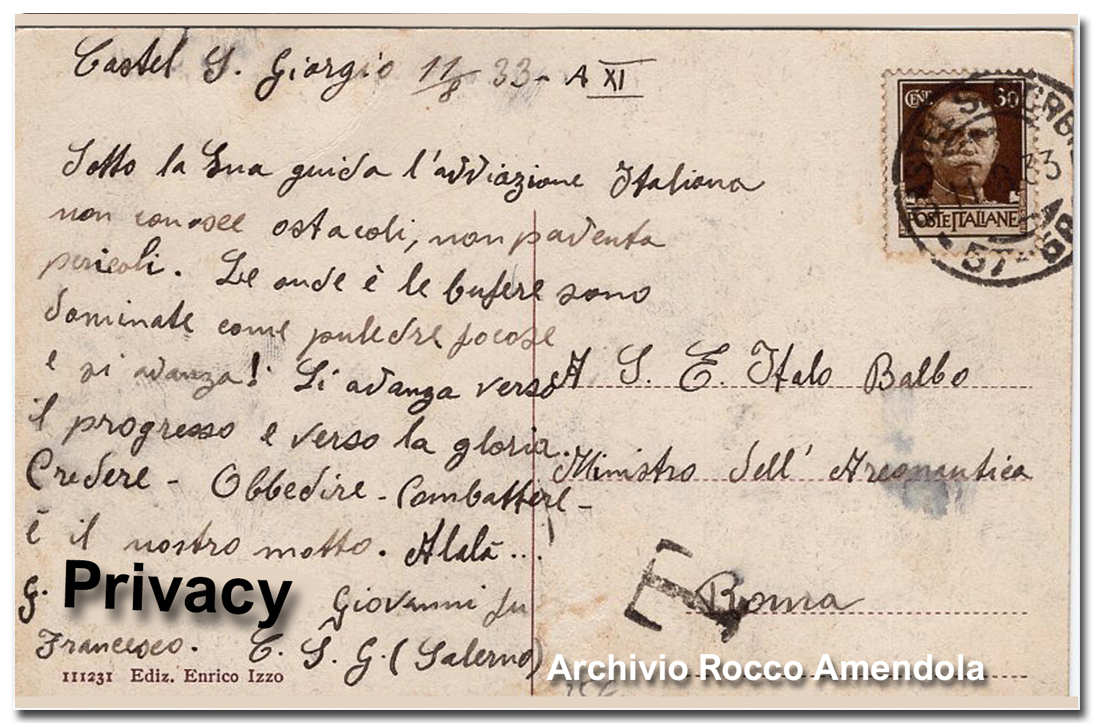 Castel S. Giorgio 11/8 33 - A XI
Sotto la Sua guida l'avviazione Italiana
non conosce ostacoli, non paventa
pericoli. Le onde è le bufere sono
dominate come puledre focose
e si avanza! Si avanza verso
il progresso e verso la gloria.
Credere - Obbedire - Combattere -
È il nostro motto. Alalà...
G. Privacy Giovanni fu
Francesco. C. S. G. (Salerno)
111231 Ediz. Enrico Izzo
CENT. 30
POSTE ITALIANE
A S. E. Italo Balbo
Ministro dell' Areonautica
Roma
T
Archivio Rocco Amendola